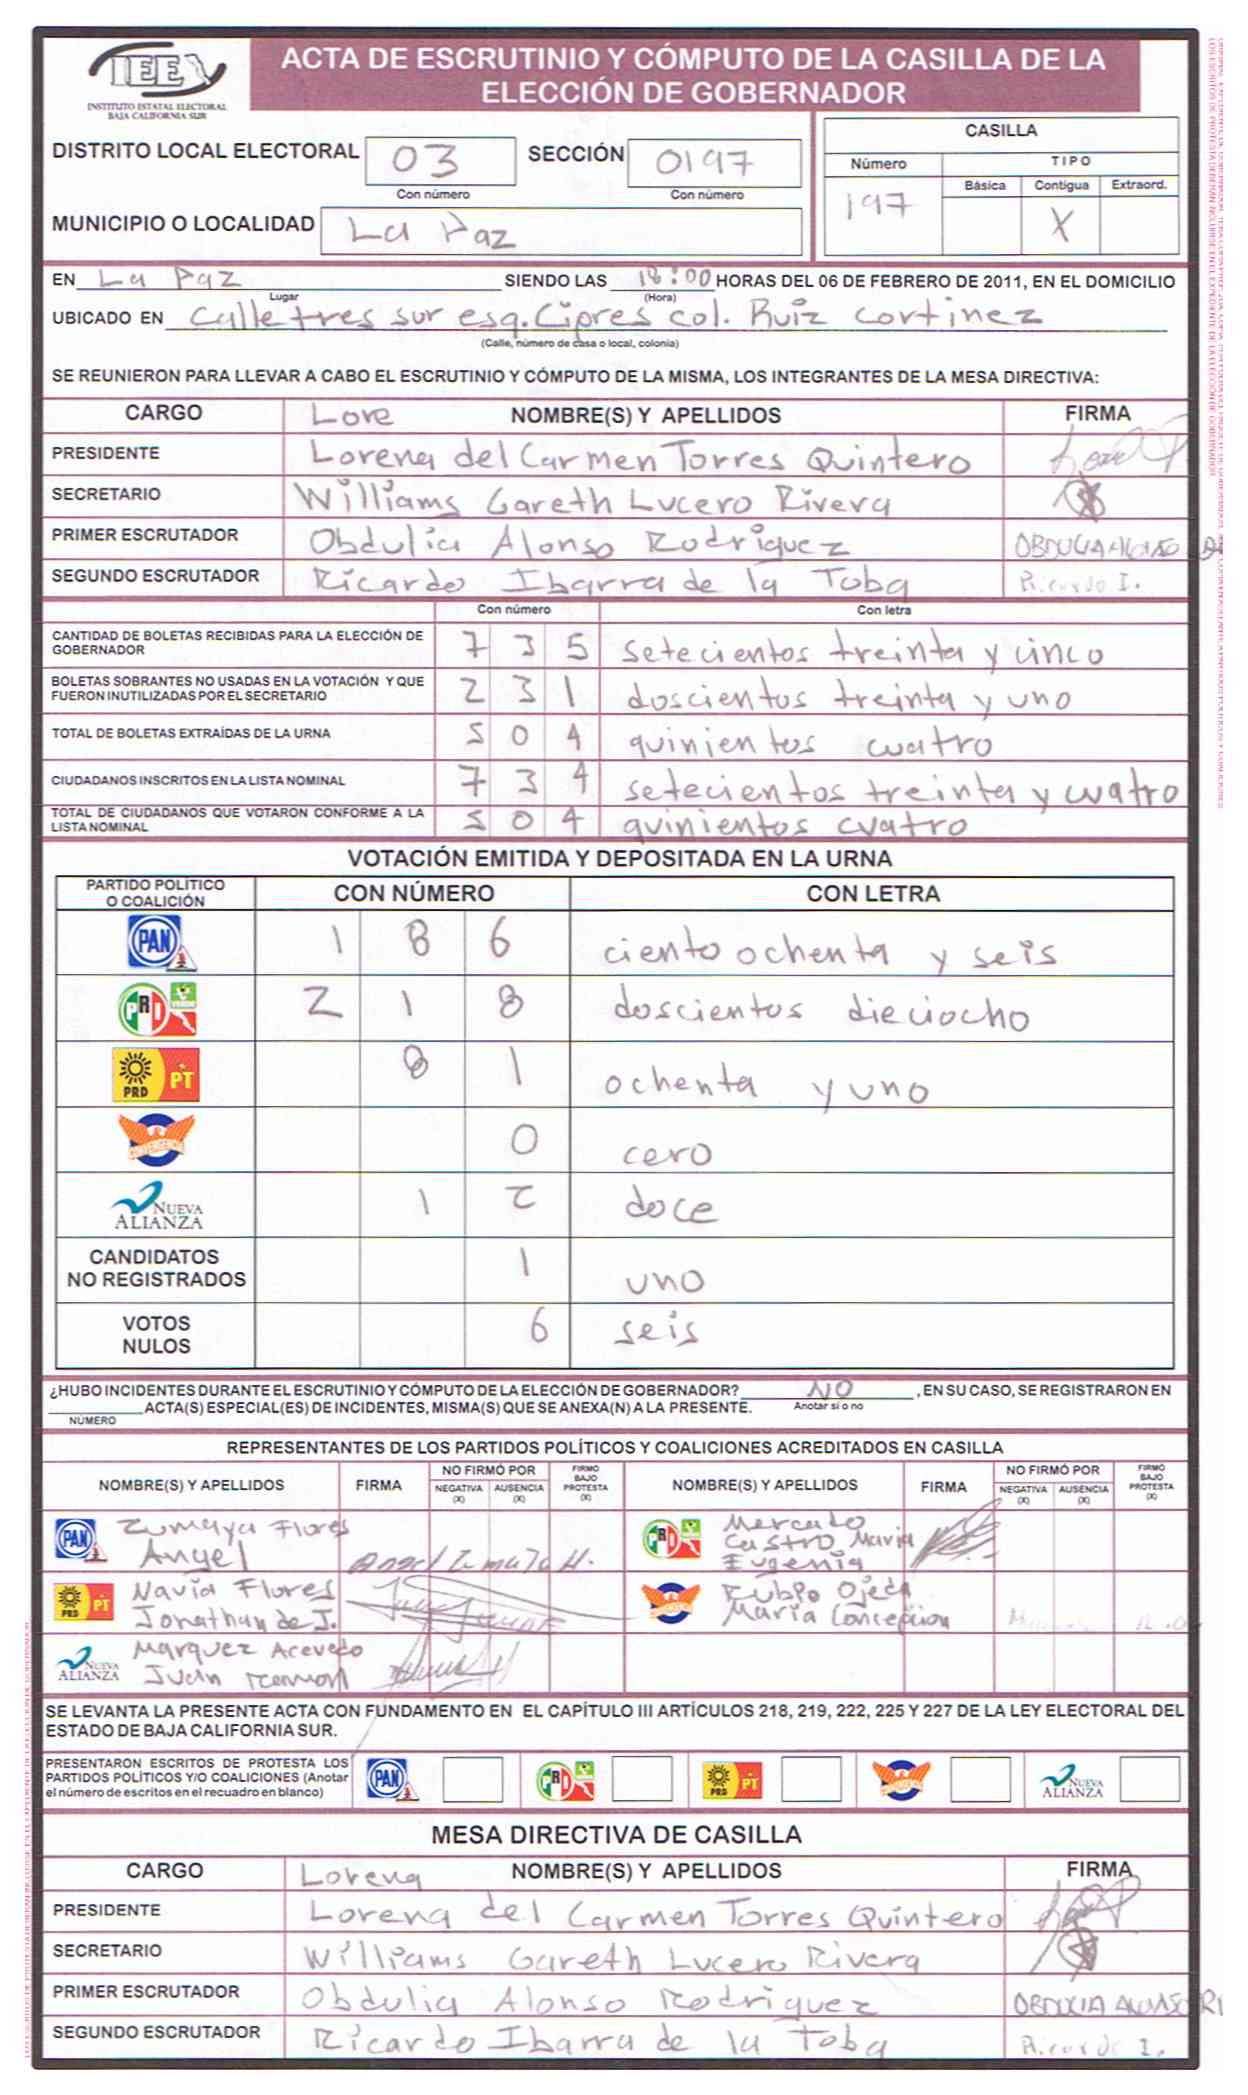 IEE
INSTITUTO ESTATAL ELECTORAL
BAJA CALIFORNIA SUR
ACTA DE ESCRUTINIO Y CÓMPUTO DE LA CASILLA DE LA
ELECCIÓN DE GOBERNADOR
DISTRITO LOCAL ELECTORAL 03 SECCIÓN 0197
Con número Con número
MUNICIPIO O LOCALIDAD La Paz
CASILLA
Número TIPO
Básica Contigua Extraord.
197 X
EN La Paz SIENDO LAS 18:00 HORAS DEL 06 DE FEBRERO DE 2011, EN EL DOMICILIO
Lugar (Hora)
UBICADO EN Calle tres sur esq. Cipres col. Ruiz Cortinez
(Calle, número de casa o local, colonia)
SE REUNIERON PARA LLEVAR A CABO EL ESCRUTINIO Y CÓMPUTO DE LA MISMA, LOS INTEGRANTES DE LA MESA DIRECTIVA:
CARGO Lore NOMBRE(S) Y APELLIDOS FIRMA
PRESIDENTE Lorena del Carmen Torres Quintero
SECRETARIO Williams Gareth Lucero Rivera
PRIMER ESCRUTADOR Obdulia Alonso Rodriguez OBDULIA ALONSO
SEGUNDO ESCRUTADOR Ricardo Ibarra de la Toba Ricardo I.
Con número Con letra
CANTIDAD DE BOLETAS RECIBIDAS PARA LA ELECCIÓN DE
GOBERNADOR 7 3 5 setecientos treinta y cinco
BOLETAS SOBRANTES NO USADAS EN LA VOTACIÓN Y QUE
FUERON INUTILIZADAS POR EL SECRETARIO 2 3 1 doscientos treinta y uno
TOTAL DE BOLETAS EXTRAÍDAS DE LA URNA 5 0 4 quinientos cuatro
CIUDADANOS INSCRITOS EN LA LISTA NOMINAL 7 3 4 setecientos treinta y cuatro
TOTAL DE CIUDADANOS QUE VOTARON CONFORME A LA
LISTA NOMINAL 5 0 4 quinientos cuatro
VOTACIÓN EMITIDA Y DEPOSITADA EN LA URNA
PARTIDO POLÍTICO
O COALICIÓN CON NÚMERO CON LETRA
PAN 1 8 6 ciento ochenta y seis
PRI VERDE 2 1 8 doscientos dieciocho
PRD PT 8 1 ochenta y uno
CONVERGENCIA 0 cero
NUEVA ALIANZA 1 2 doce
CANDIDATOS
NO REGISTRADOS 1 uno
VOTOS
NULOS 6 seis
¿HUBO INCIDENTES DURANTE EL ESCRUTINIO Y CÓMPUTO DE LA ELECCIÓN DE GOBERNADOR? NO , EN SU CASO, SE REGISTRARON EN
ACTA(S) ESPECIAL(ES) DE INCIDENTES, MISMA(S) QUE SE ANEXA(N) A LA PRESENTE. Anotar si o no
NÚMERO
REPRESENTANTES DE LOS PARTIDOS POLÍTICOS Y COALICIONES ACREDITADOS EN CASILLA
NOMBRE(S) Y APELLIDOS FIRMA NO FIRMÓ POR NEGATIVA (X) AUSENCIA (X) FIRMÓ BAJO PROTESTA (X) NOMBRE(S) Y APELLIDOS FIRMA NO FIRMÓ POR NEGATIVA (X) AUSENCIA (X) FIRMÓ BAJO PROTESTA (X)
PAN Zumaya Flores
Angel
PRI Mercado
Castro Maria
Eugenia
PRD PT Navia Flores
Jonathan de J.
CONVERGENCIA Rubio Ojeda
Maria Concepcion
NUEVA ALIANZA Marquez Acevedo
Juan Ramon
SE LEVANTA LA PRESENTE ACTA CON FUNDAMENTO EN EL CAPÍTULO III ARTÍCULOS 218, 219, 222, 225 Y 227 DE LA LEY ELECTORAL DEL
ESTADO DE BAJA CALIFORNIA SUR.
PRESENTARON ESCRITOS DE PROTESTA LOS
PARTIDOS POLÍTICOS Y/O COALICIONES (Anotar
el número de escritos en el recuadro en blanco)
PAN PRI PRD PT CONVERGENCIA NUEVA ALIANZA
MESA DIRECTIVA DE CASILLA
CARGO Lorena NOMBRE(S) Y APELLIDOS FIRMA
PRESIDENTE Lorena del Carmen Torres Quintero
SECRETARIO Williams Gareth Lucero Rivera
PRIMER ESCRUTADOR Obdulia Alonso Rodriguez OBDULIA ALONSO R
SEGUNDO ESCRUTADOR Ricardo Ibarra de la Toba Ricardo I.